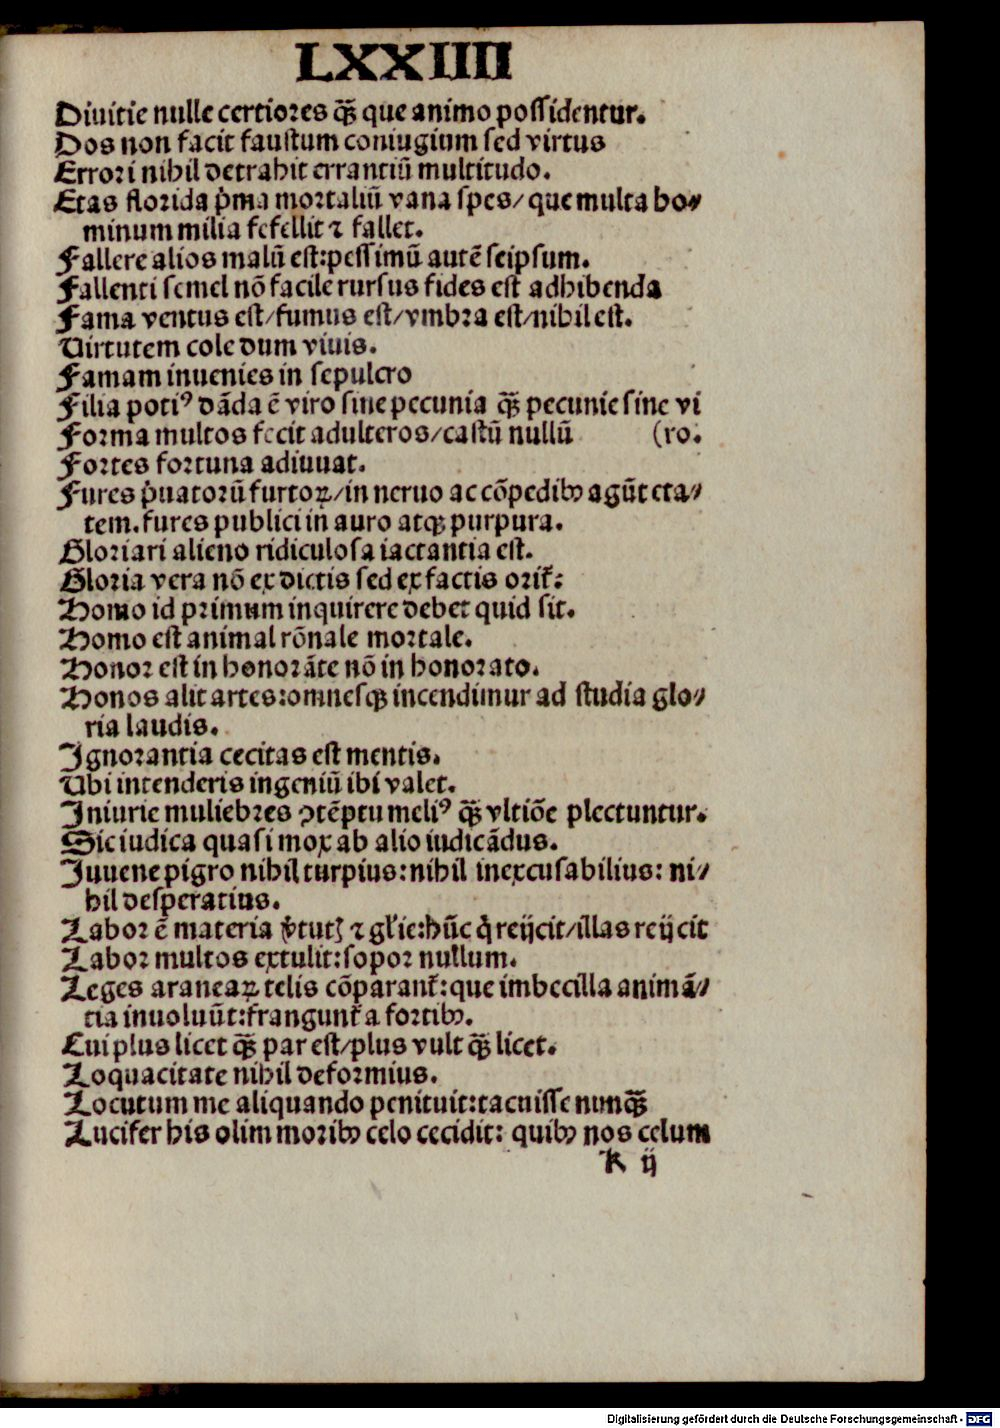 LXXIIII
Diuitie nulle certiores q̃ꝫ que animo possidentur.
Dos non facit faustum coniugium sed virtus
Errori nihil detrahit errantiũ multitudo.
Etas florida p̃ma mortaliũ vana spes/ que multa ho⸗
minum milia fefellit ⁊ fallet.
Fallere alios malũ est:pessimũ autẽ seipsum.
Fallenti semel nõ facile rursus fides est adhibenda
Fama ventus est/fumus est/vmbra est/nihil est.
Uirtutem cole dum viuis.
Famam inuenies in sepulcro
Filia potiꝰ dãda ẽ viro sine pecunia q̃ꝫ pecunie sine vi
Forma multos fecit adulteros/castũ nullũ (ro.
Fortes fortuna adiuuat.
Fures p̃uatorũ furtoꝝ/in neruo ac cõpedibꝰ agũt eta⸗
tem.fures publici in auro atqꝫ purpura.
Gloriari alieno ridiculosa iactantia est.
Gloria vera nõ ex dictis sed ex factis orit᷑:
Homo id primum inquirere debet quid sit.
Homo est animal rõnale mortale.
Honor est in honorãte nõ in honorato.
Honos alit artes:omnesqꝫ incendimur ad studia glo⸗
ria laudis.
Ignorantia cecitas est mentis.
Ubi intenderis ingeniũ ibi valet.
Iniurie muliebres ꝯtẽptu meliꝰ q̃ꝫ vltiõe plectuntur.
Sic iudica quasi mox ab alio iudicãdus.
Iuuene pigro nihil turpius:nihil inexcusabilius: ni⸗
hil desperatius.
Labor ẽ materia v̓tutꝭ ⁊ gl̓ie:hũc q̓ reijcit/illas reijcit
Labor multos extulit:sopor nullum.
Leges araneaꝝ telis cõparant᷑:que imbecilla animã⸗
tia inuoluũt:frangunt᷑ a fortibꝰ.
Cui plus licet q̃ꝫ par est/plus vult q̃ꝫ licet.
Loquacitate nihil deformius.
Locutum me aliquando penituit:tacuisse nunq̃ꝫ
Lucifer his olim moribꝰ celo cecidit: quibꝰ nos celum
K ij
Digitalisierung gefördert durch die Deutsche Forschungsgemeinschaft - DFG